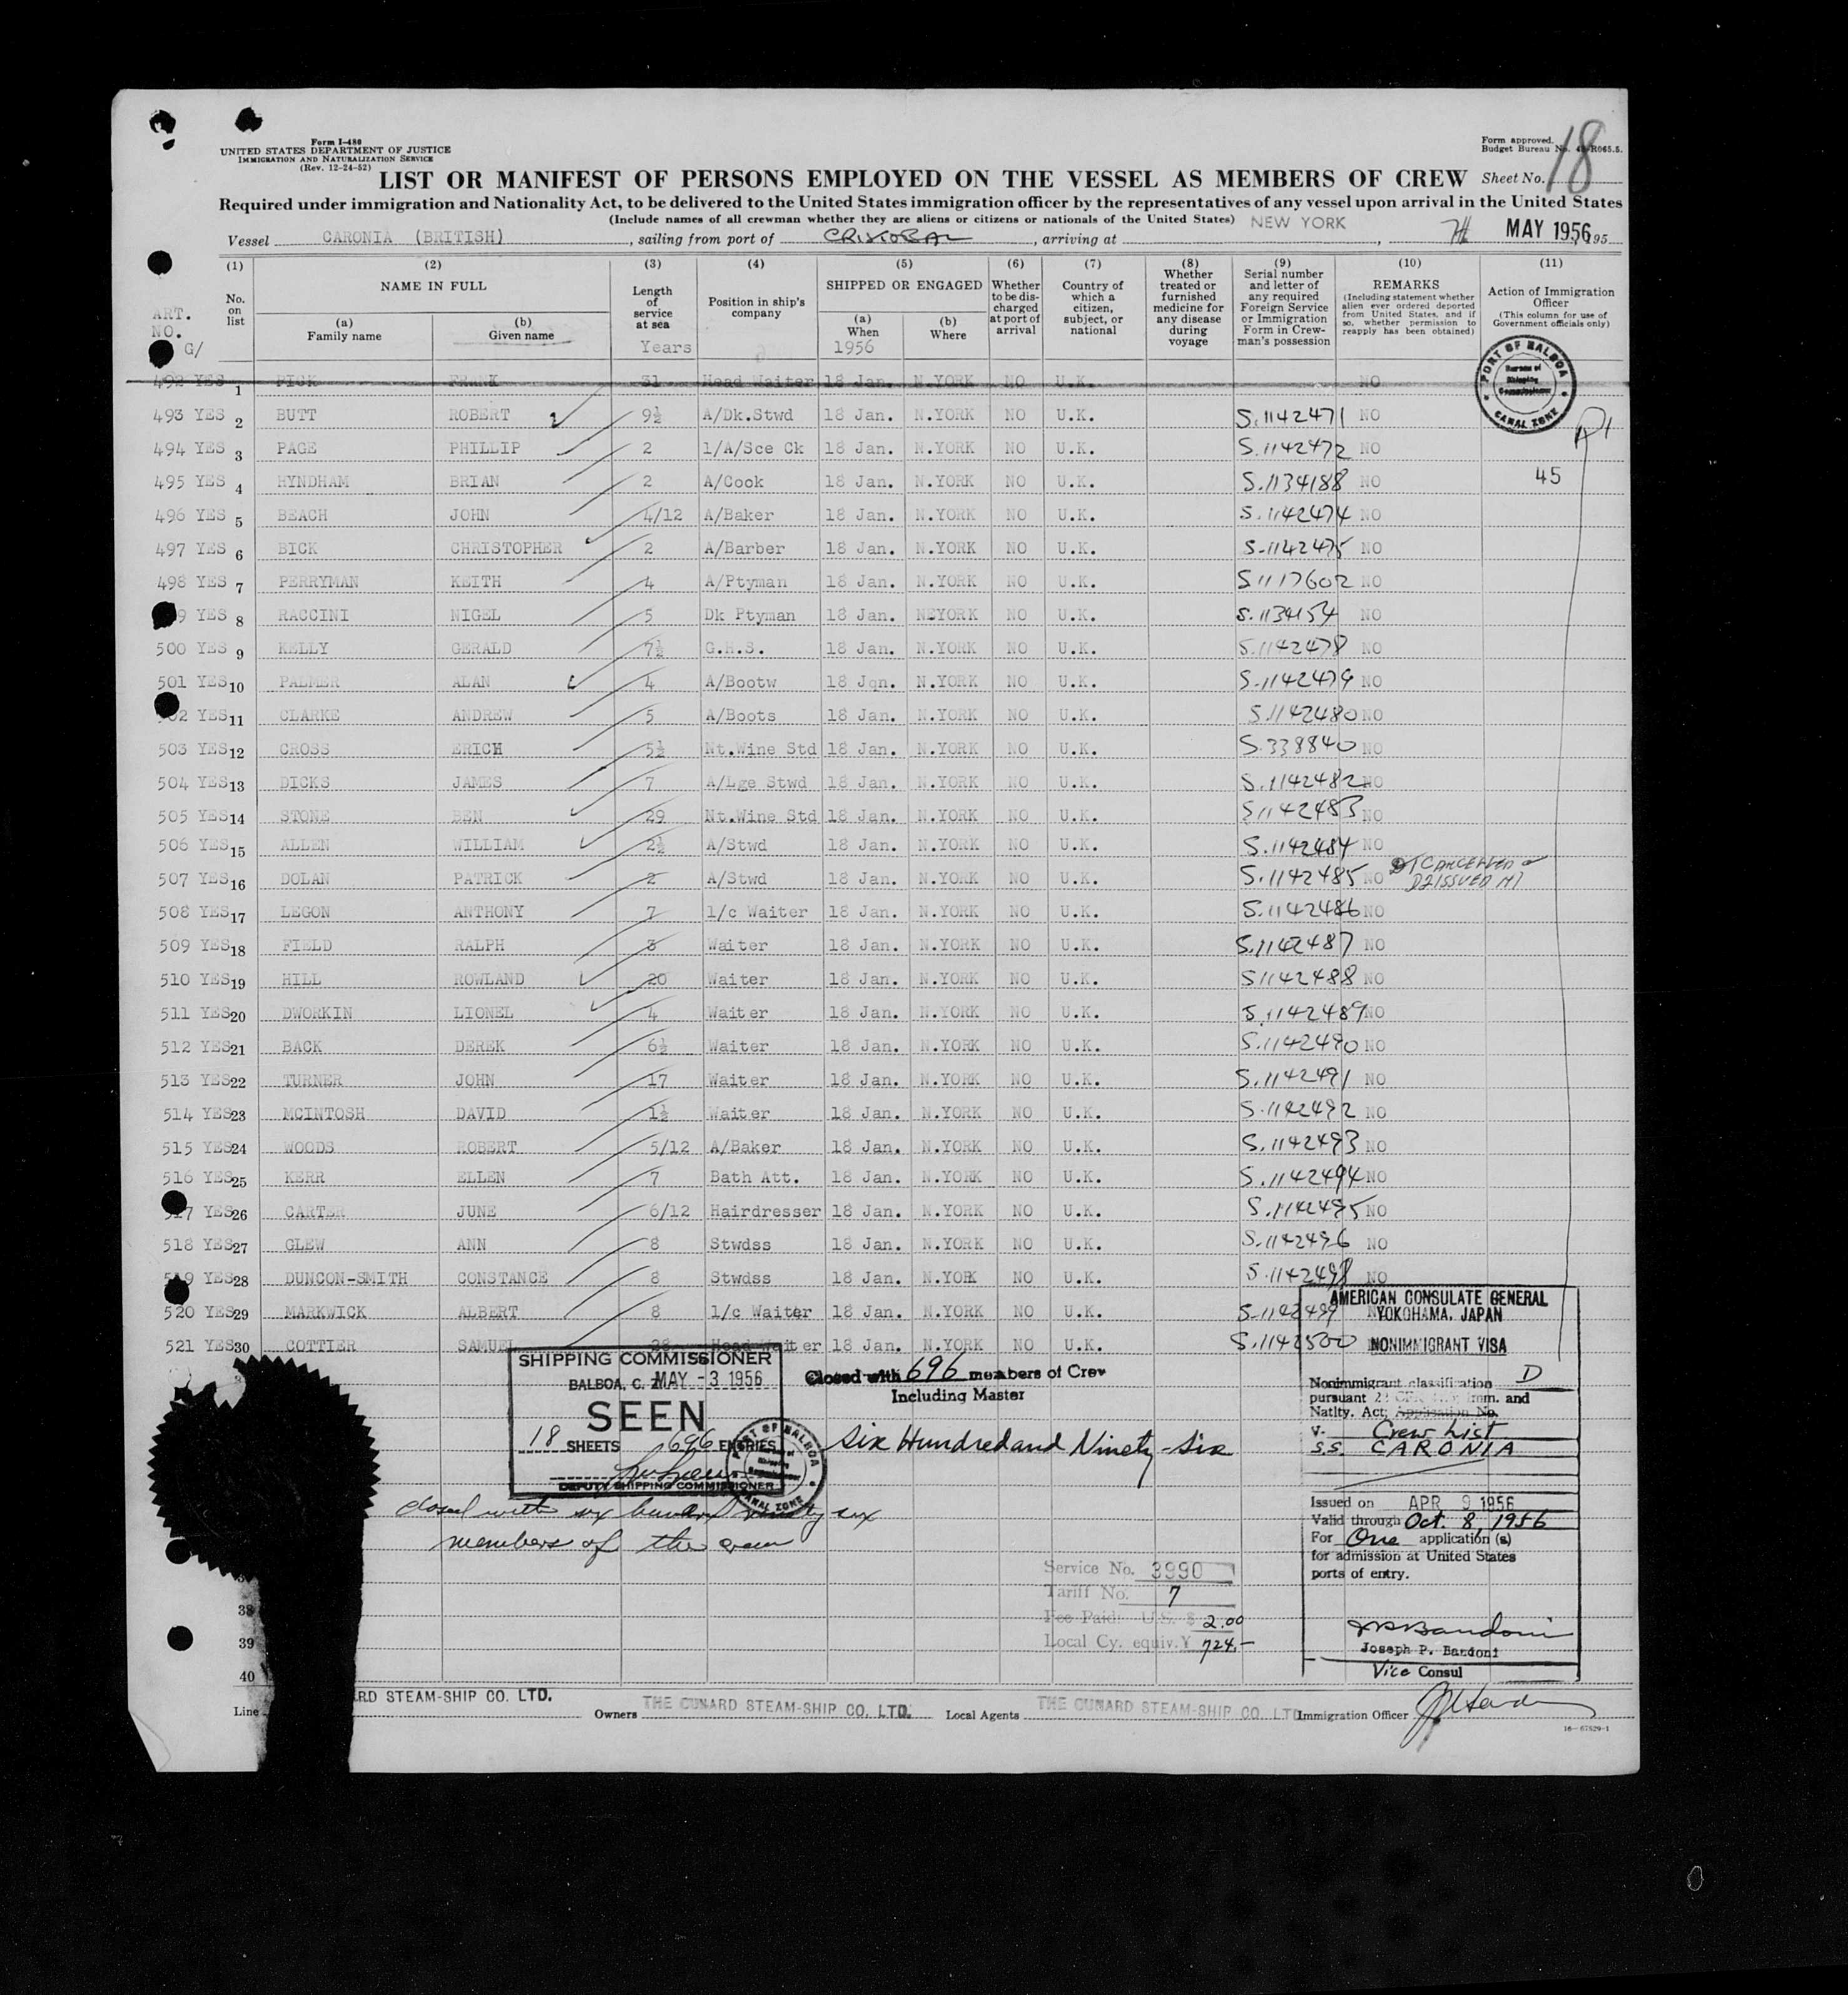 Form I-480
UNITED STATES DEPARTMENT OF JUSTICE
IMMIGRATION AND NATURALIZATION SERVICE
(Rev. 12-24-52)
Form approved.
Budget Bureau No.
18
LIST OR MANIFEST OF PERSONS EMPLOYED ON THE VESSEL AS MEMBERS OF CREW Sheet No.
Required under immigration and Nationality Act, to be delivered to the United States immigration officer by the representatives of any vessel upon arrival in the United States
(Include names of all crewman whether they are aliens or citizens or nationals of the United States)
Vessel CARONIA (BRITISH), sailing from port of CRISTOBAL, arriving at NEW YORK, 7th MAY 1956, 195
(1) (2) (3) (4) (5) (6) (7) (8) (9) (10) (11)
ART. NO. G/
No. on list
NAME IN FULL
(a) Family name
(b) Given name
Length of service at sea
Years
Position in ship's company
SHIPPED OR ENGAGED
(a) When
1956
(b) Where
Whether to be discharged at port of arrival
Country of which a citizen, subject, or national
Whether treated or furnished medicine for any disease during voyage
Serial number and letter of any required Foreign Service or Immigration Form in Crewman's possession
REMARKS
(Including statement whether alien ever ordered deported from United States, and if so, whether permission to reapply has been obtained)
Action of Immigration Officer
(This column for use of Government officials only)
PORT OF BALBOA
Bureau of Shipping Commissioner
CANAL ZONE
492 YES 1 PICK FRANK 31 Head Waiter 18 Jan. N.YORK NO U.K. NO
493 YES 2 BUTT ROBERT 9½ A/Dk.Stwd 18 Jan. N.YORK NO U.K. S.1142471 NO
494 YES 3 PAGE PHILLIP 2 1/A/Sce Ck 18 Jan. N.YORK NO U.K. S.1142472 NO
495 YES 4 HYNDHAM BRIAN 2 A/Cook 18 Jan. N.YORK NO U.K. S.1134188 NO 45
496 YES 5 BEACH JOHN 4/12 A/Baker 18 Jan. N.YORK NO U.K. S.1142474 NO
497 YES 6 BICK CHRISTOPHER 2 A/Barber 18 Jan. N.YORK NO U.K. S-1142475 NO
498 YES 7 PERRYMAN KEITH 4 A/Ptyman 18 Jan. N.YORK NO U.K. S1117602 NO
9 YES 8 RACCINI NIGEL 5 Dk Ptyman 18 Jan. NEYORK NO U.K. S.1134154 NO
500 YES 9 KELLY GERALD 7½ G.H.S. 18 Jan. N.YORK NO U.K. S.1142478 NO
501 YES 10 PALMER ALAN 4 A/Bootw 18 Jqn. N.YORK NO U.K. S.1142479 NO
02 YES 11 CLARKE ANDREW 5 A/Boots 18 Jan. N.YORK NO U.K. S.1142480 NO
503 YES 12 CROSS ERICH 5½ Nt.Wine Std 18 Jan. N.YORK NO U.K. S.338840 NO
504 YES 13 DICKS JAMES 7 A/Lge Stwd 18 Jan. N.YORK NO U.K. S.1142482 NO
505 YES 14 STONE BEN 29 Nt.Wine Std 18 Jan. N.YORK NO U.K. S1142483 NO
506 YES 15 ALLEN WILLIAM 2½ A/Stwd 18 Jan. N.YORK NO U.K. S.1142484 NO
507 YES 16 DOLAN PATRICK 2 A/Stwd 18 Jan. N.YORK NO U.K. S.1142485 NO CANCELLED ISSUED
508 YES 17 LEGON ANTHONY 7 1/c Waiter 18 Jan. N.YORK NO U.K. S.1142486 NO
509 YES 18 FIELD RALPH 3 Waiter 18 Jan. N.YORK NO U.K. S.1142487 NO
510 YES 19 HILL ROWLAND 20 Waiter 18 Jan. N.YORK NO U.K. S1142488 NO
511 YES 20 DWORKIN LIONEL 4 Waiter 18 Jan. N.YORK NO U.K. S.1142489 NO
512 YES 21 BACK DEREK 6½ Waiter 18 Jan. N.YORK NO U.K. S.1142490 NO
513 YES 22 TURNER JOHN 17 Waiter 18 Jan. N.YORK NO U.K. S.1142491 NO
514 YES 23 MCINTOSH DAVID 1½ Waiter 18 Jan. N.YORK NO U.K. S.1142492 NO
515 YES 24 WOODS ROBERT 5/12 A/Baker 18 Jan. N.YORK NO U.K. S.1142493 NO
516 YES 25 KERR ELLEN 7 Bath Att. 18 Jan. N.YORK NO U.K. S.1142494 NO
517 YES 26 CARTER JUNE 6/12 Hairdresser 18 Jan. N.YORK NO U.K. S.1142495 NO
518 YES 27 GLEW ANN 8 Stwdss 18 Jan. N.YORK NO U.K. S.1142496 NO
519 YES 28 DUNCON-SMITH CONSTANCE 8 Stwdss 18 Jan. N.YORK NO U.K. S.1142498 NO
520 YES 29 MARKWICK ALBERT 8 1/c Waiter 18 Jan. N.YORK NO U.K. S.1142499
521 YES 30 COTTIER SAMUEL 28 Head Waiter 18 Jan. N.YORK NO U.K. S.1142500
SHIPPING COMMISSIONER
BALBOA, C. Z. MAY -3 1956
SEEN
18 SHEETS 696 ENTRIES
DEPUTY SHIPPING COMMISSIONER
PORT OF BALBOA
CANAL ZONE
Closed with 696 members of Crew
Including Master
Six Hundred and Ninety-Six
closed with six hundred ninety six
members of the crew
AMERICAN CONSULATE GENERAL
YOKOHAMA, JAPAN
NONIMMIGRANT VISA
Nonimmigrant classification D
pursuant 22 CFR Imm. and
Natlty. Act; Application No.
V- Crew List
S.S. CARONIA
Issued on APR 9 1956
Valid through Oct. 8, 1956
For One application (s)
for admission at United States
ports of entry.
Joseph P. Bandoni
Vice Consul
Service No. 3990
Tariff No. 7
Fee Paid: U.S. $ 2.00
Local Cy. equiv. Y 724.-
38
39
40
Line RD STEAM-SHIP CO. LTD. Owners THE CUNARD STEAM-SHIP CO. LTD. Local Agents THE CUNARD STEAM-SHIP CO. LTD Immigration Officer
16-67829-1